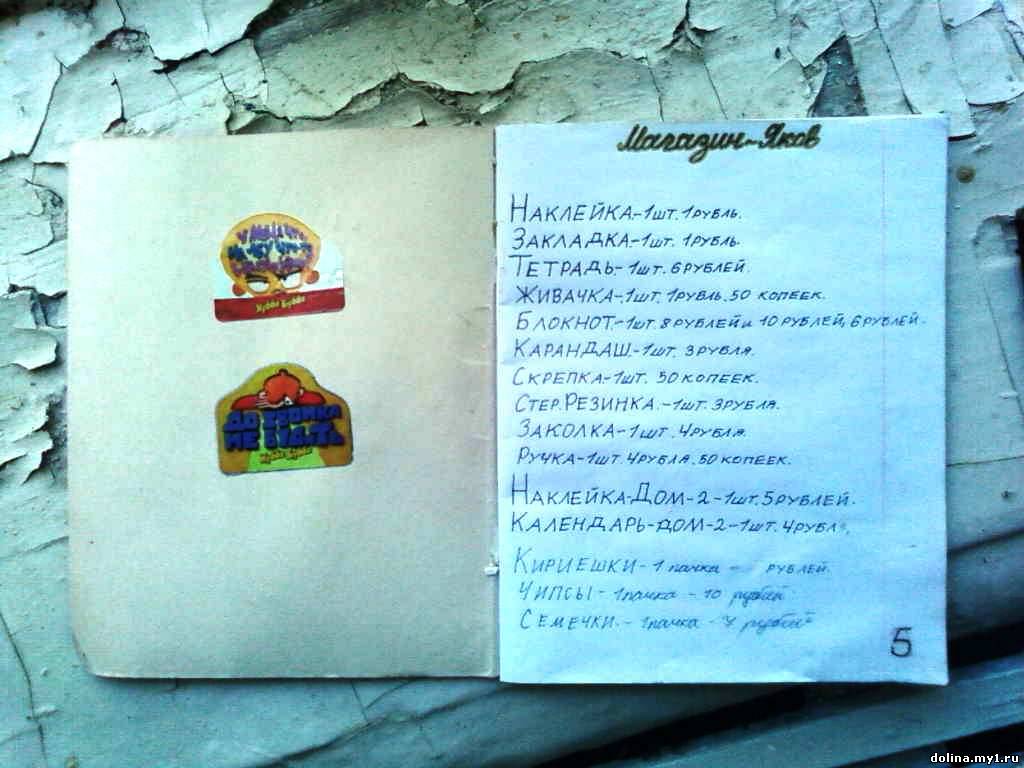 У МЕНЯ ЧТО
НА ЛБУ ЧТО-ТО
Хубба Бубба
ДО ЗВОНКА
НЕ БУДИТЬ
Хубба Бубба
Магазин-Яков
НАКЛЕЙКА-1ШТ. 1РУБЛЬ.
ЗАКЛАДКА-1ШТ. 1РУБЛЬ.
ТЕТРАДЬ-1ШТ. 6РУБЛЕЙ.
ЖИВАЧКА-1ШТ. 1РУБЛЬ. 50 КОПЕЕК.
БЛОКНОТ-1ШТ. 8 РУБЛЕЙ и 10 РУБЛЕЙ, 6 РУБЛЕЙ.
КАРАНДАШ-1ШТ. 3РУБЛЯ.
СКРЕПКА-1ШТ. 50 КОПЕЕК.
СТЕР.РЕЗИНКА.-1ШТ. 3РУБЛЯ.
ЗАКОЛКА-1ШТ. 4РУБЛЯ.
РУЧКА-1ШТ. 4РУБЛЯ. 50 КОПЕЕК.
НАКЛЕЙКА-ДОМ-2-1ШТ. 5РУБЛЕЙ.
КАЛЕНДАРЬ-ДОМ-2-1ШТ. 4РУБЛ
КИРИЕШКИ-1 пачка - РУБЛЕЙ.
ЧИПСЫ-1пачка - 10 рублей
СЕМЕЧКИ.-1пачка - 7 рублей
5
dolina.my1.ru